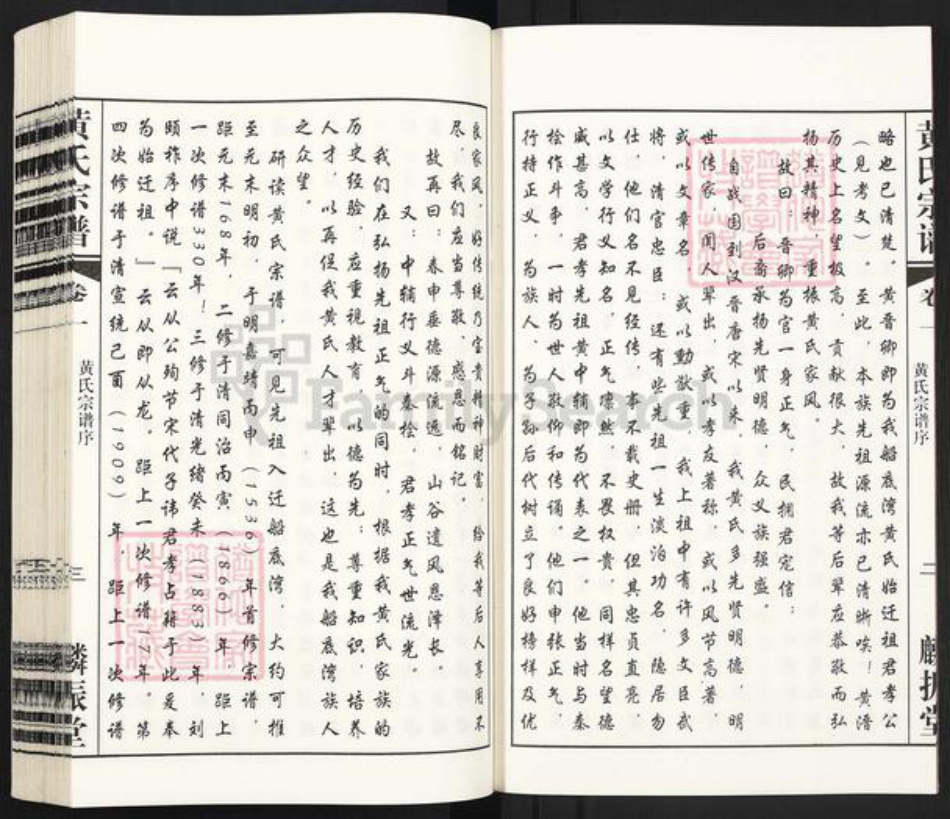 黄氏宗谱
卷一
黄氏宗谱序
二
麟振堂
略也已清楚。黄晋卿即为我船底湾黄氏始迁祖君孝公
（见考文）。至此，本族先祖源流亦已清晰唉！黄潽
历史上名望极高，贡献很大，故我等后辈应恭敬而弘
扬其精神，重振黄氏家风。
故曰：晋卿为官一身正气，民拥君宠信；
后裔承扬先贤明德，众义族强盛。
自战国到汉晋唐宋以来，我黄氏多先贤明德，明
世传家，闻人辈出，或以孝友著称，或以风节高著，
或以文章名，或以勳猷重，我上祖中有许多文臣武
将，清官忠臣；还有些先祖一生淡泊功名，隐居勿
仕，他们名不见经传，事不载史册，但其忠贞直亮，
以文学行义知名，正气凛然，不畏权贵，同样名望德
威甚高，君孝先祖黄中辅即为代表之一，他当时与秦
桧作斗争，一时为世人敬仰和传诵。他们申张正气，
行持正义，为族人、为子孙后代树立了良好榜样及优
良家风，好传统乃宝贵精神财富，给我等后人享用不
尽，我们应当尊敬、感恩而铭记。
故再曰：春申垂德源流远，山谷遗风恩泽长。
又：中辅行义斗秦桧，君孝正气世流光。
我们在弘扬先祖正气的同时，根据我黄氏家族的
历史经验，应重视教育，以德为先；尊重知识，培养
人才，以再促我黄氏人才辈出，这也是我船底湾族人
之众望。
研读黄氏宗谱，可见先祖入迁船底湾，大约可推
至元末明初，于明嘉靖丙申（1536）年首修宗谱，
距元末168年，二修于清同治丙寅（1866）年，距上
一次修谱330年！三修于清光绪癸未（1883）年，刘
颐祚序中说『云从公殉节宋代子讳君孝占籍于此爰奉
为始迁祖。』云从即从龙。距上一次修谱17年。第
四次修谱于清宣统己酉（1909）年，距上一次修谱
黄氏宗谱
卷一
黄氏宗谱序
三
麟振堂
FamilySearch